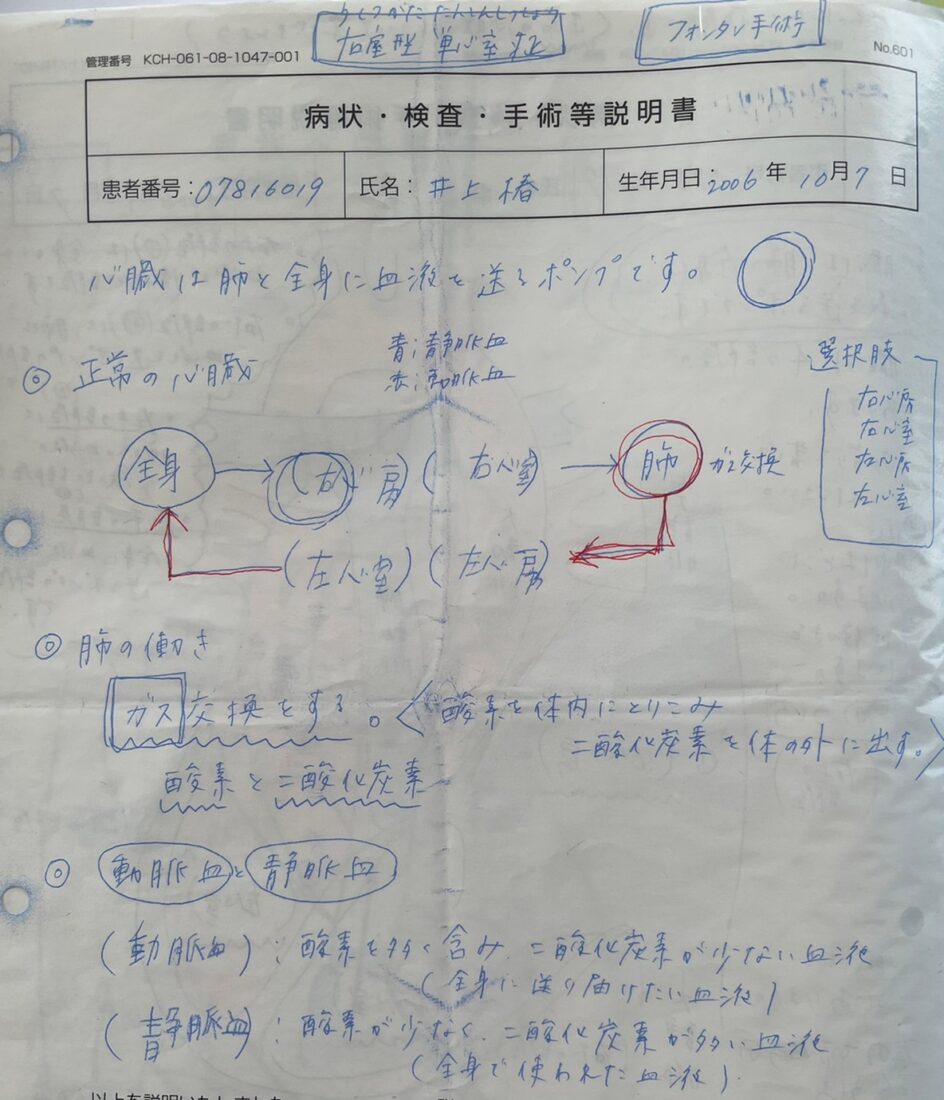 右室型 単心室症
フォンタン手術
管理番号 KCH-061-08-1047-001
No.601
病状・検査・手術等説明書
患者番号:07816019 氏名:井上椿 生年月日:2006年10月7日
心臓は肺と全身に血液を送るポンプです。
青:静脈血
赤:動脈血
◎ 正常の心臓
選択肢
右心房
右心室
左心房
左心室
全身 → (右心房) (右心室 → 肺 ガス交換
(左心室) (左心房)
◎ 肺の働き
ガス交換をする。
酸素を体内にとりこみ
二酸化炭素を体の外に出す。
酸素と二酸化炭素
◎ 動脈血と静脈血
(動脈血):酸素を多く含み、二酸化炭素が少ない血液
(全身に送り届けたい血液)
(静脈血):酸素が少なく、二酸化炭素が多い血液
(全身で使われた血液)